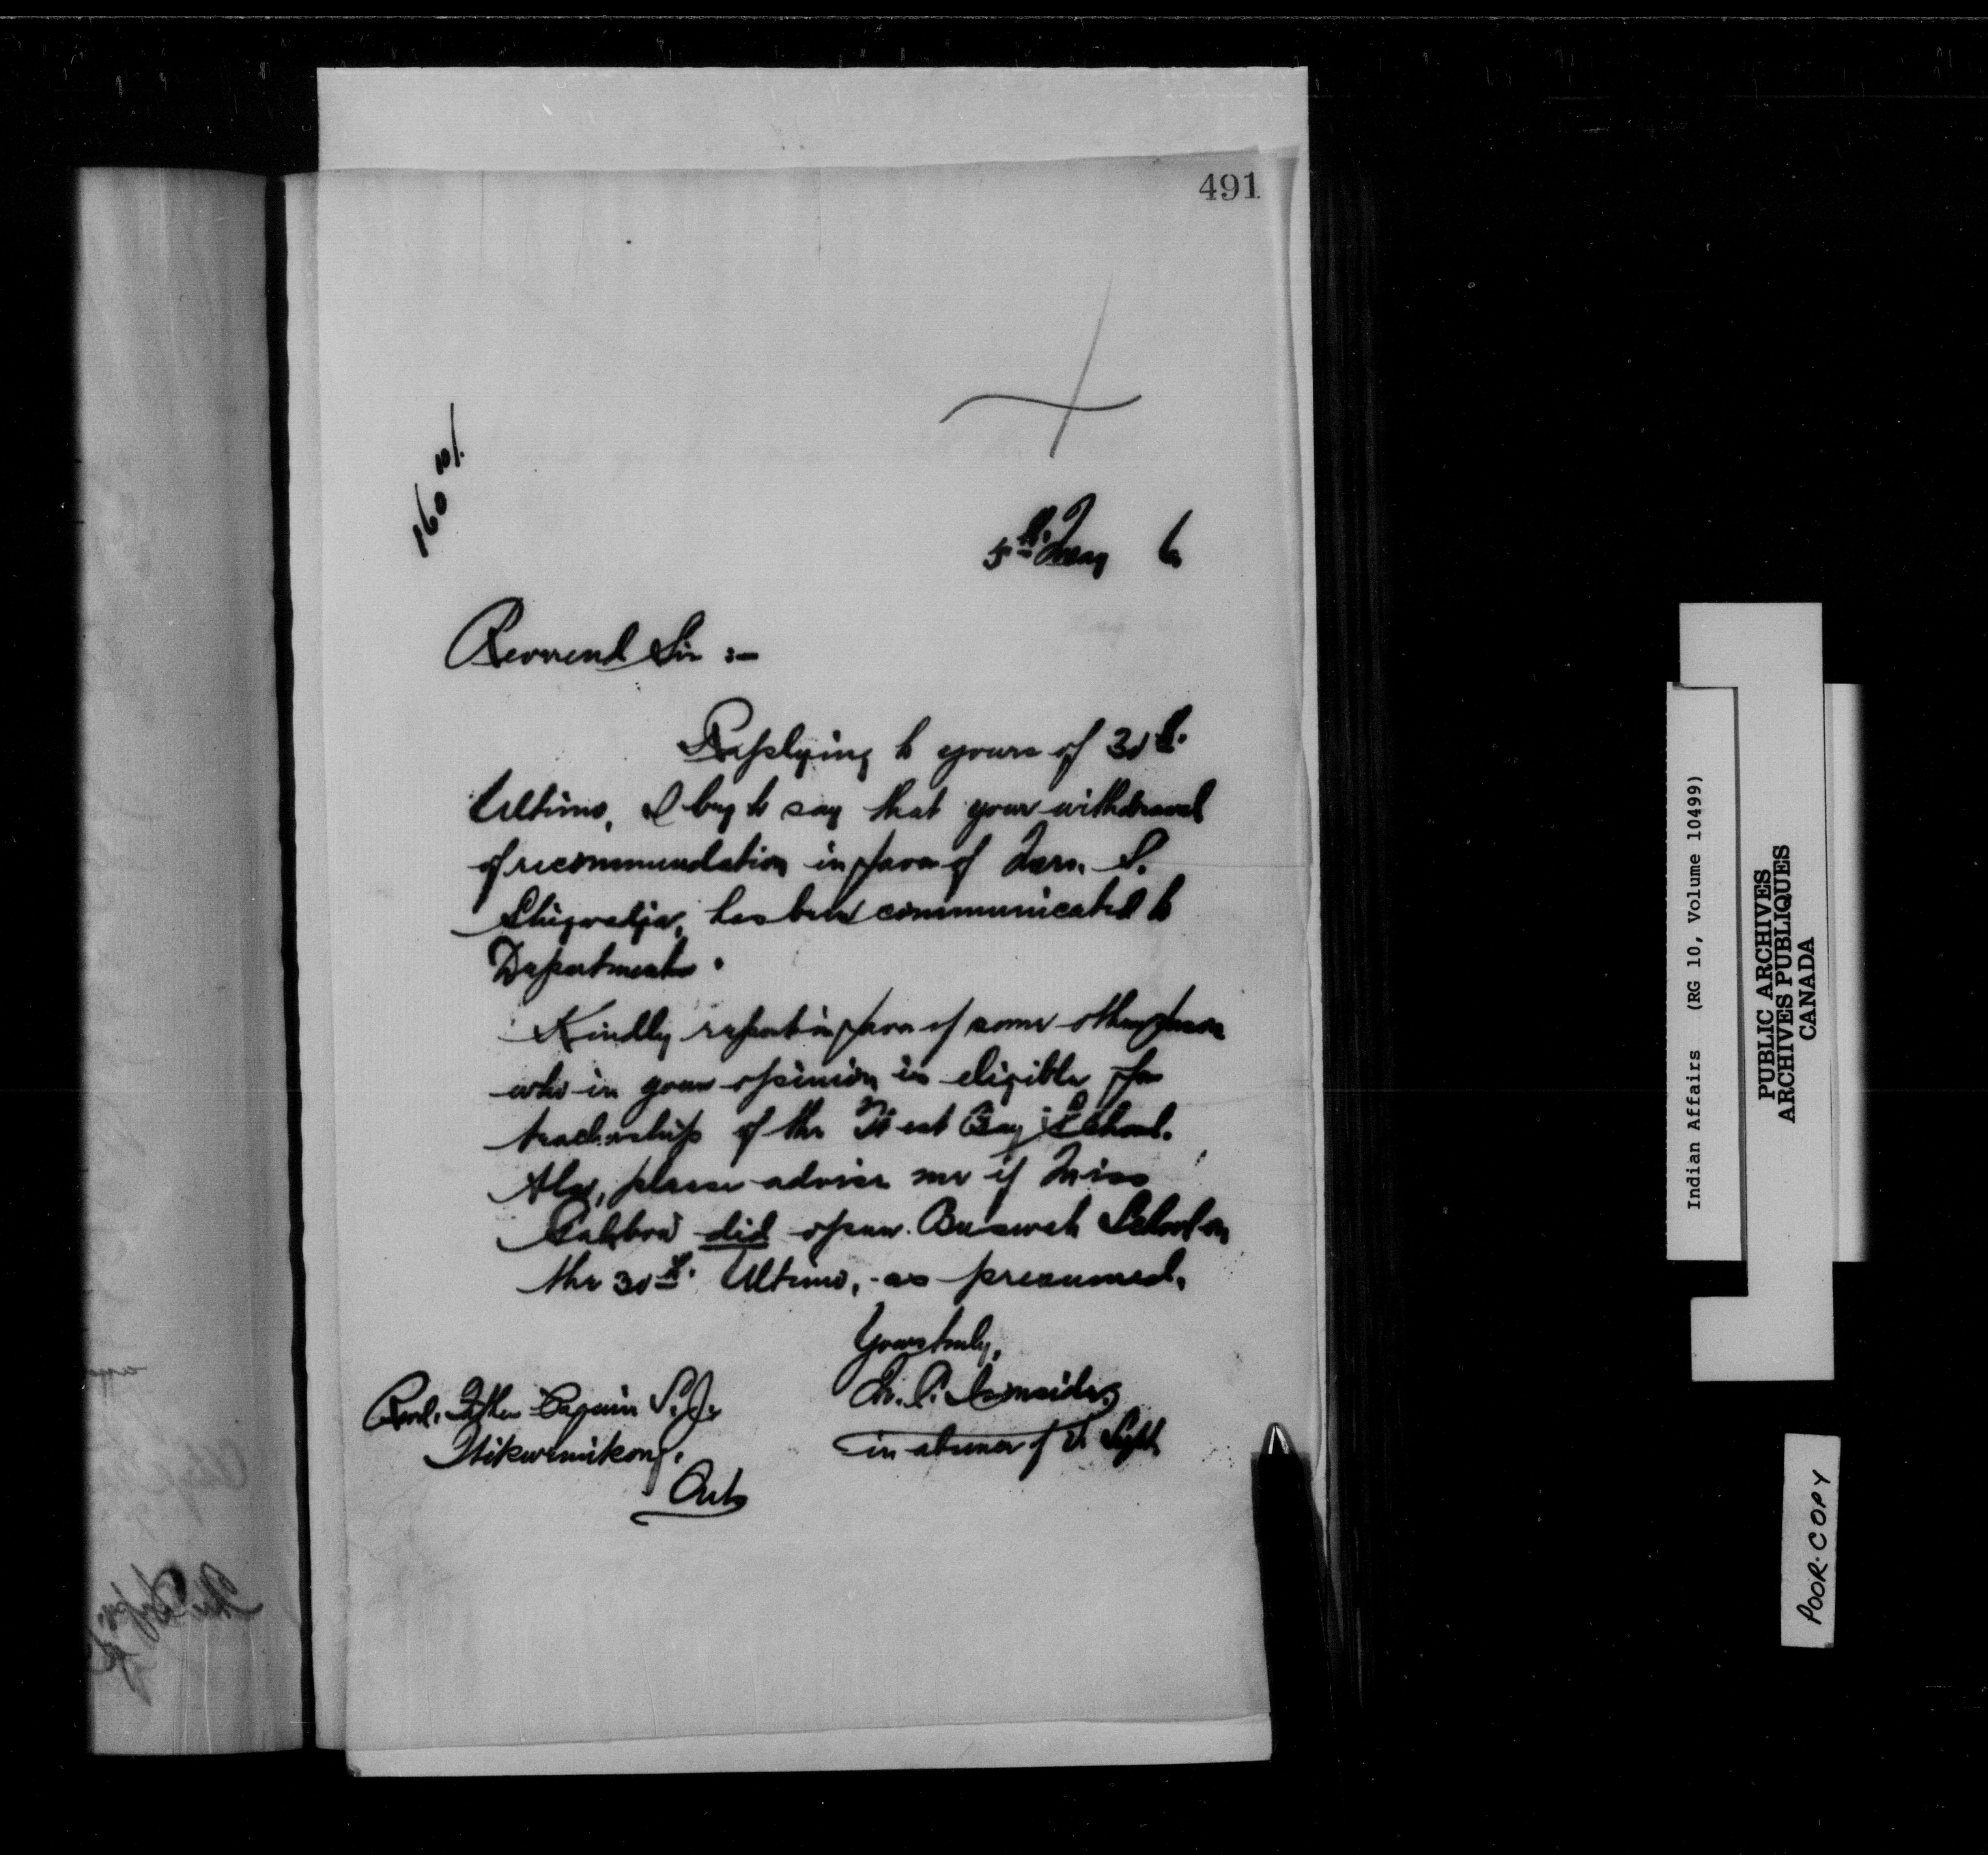 491
160
5th May 6
Reverend Sir :-
Replying to yours of 30th.
Ultimo, I beg to say that your withdrawal
of recommendation in favor of Mrs. S.
has been communicated to
Department.
Kindly report in favor of some other person
who in your opinion is eligible for
teachership of the West Bay School.
Also, please advise me if Miss
did open Buzwah School on
the 30th. Ultimo, as presumed.
Yours truly,
in absence of I. Supt.
Revd. Father S.J.
Wikwemikong.
Ont
Indian Affairs (RG 10, Volume 10499)
PUBLIC ARCHIVES
ARCHIVES PUBLIQUES
CANADA
POOR COPY